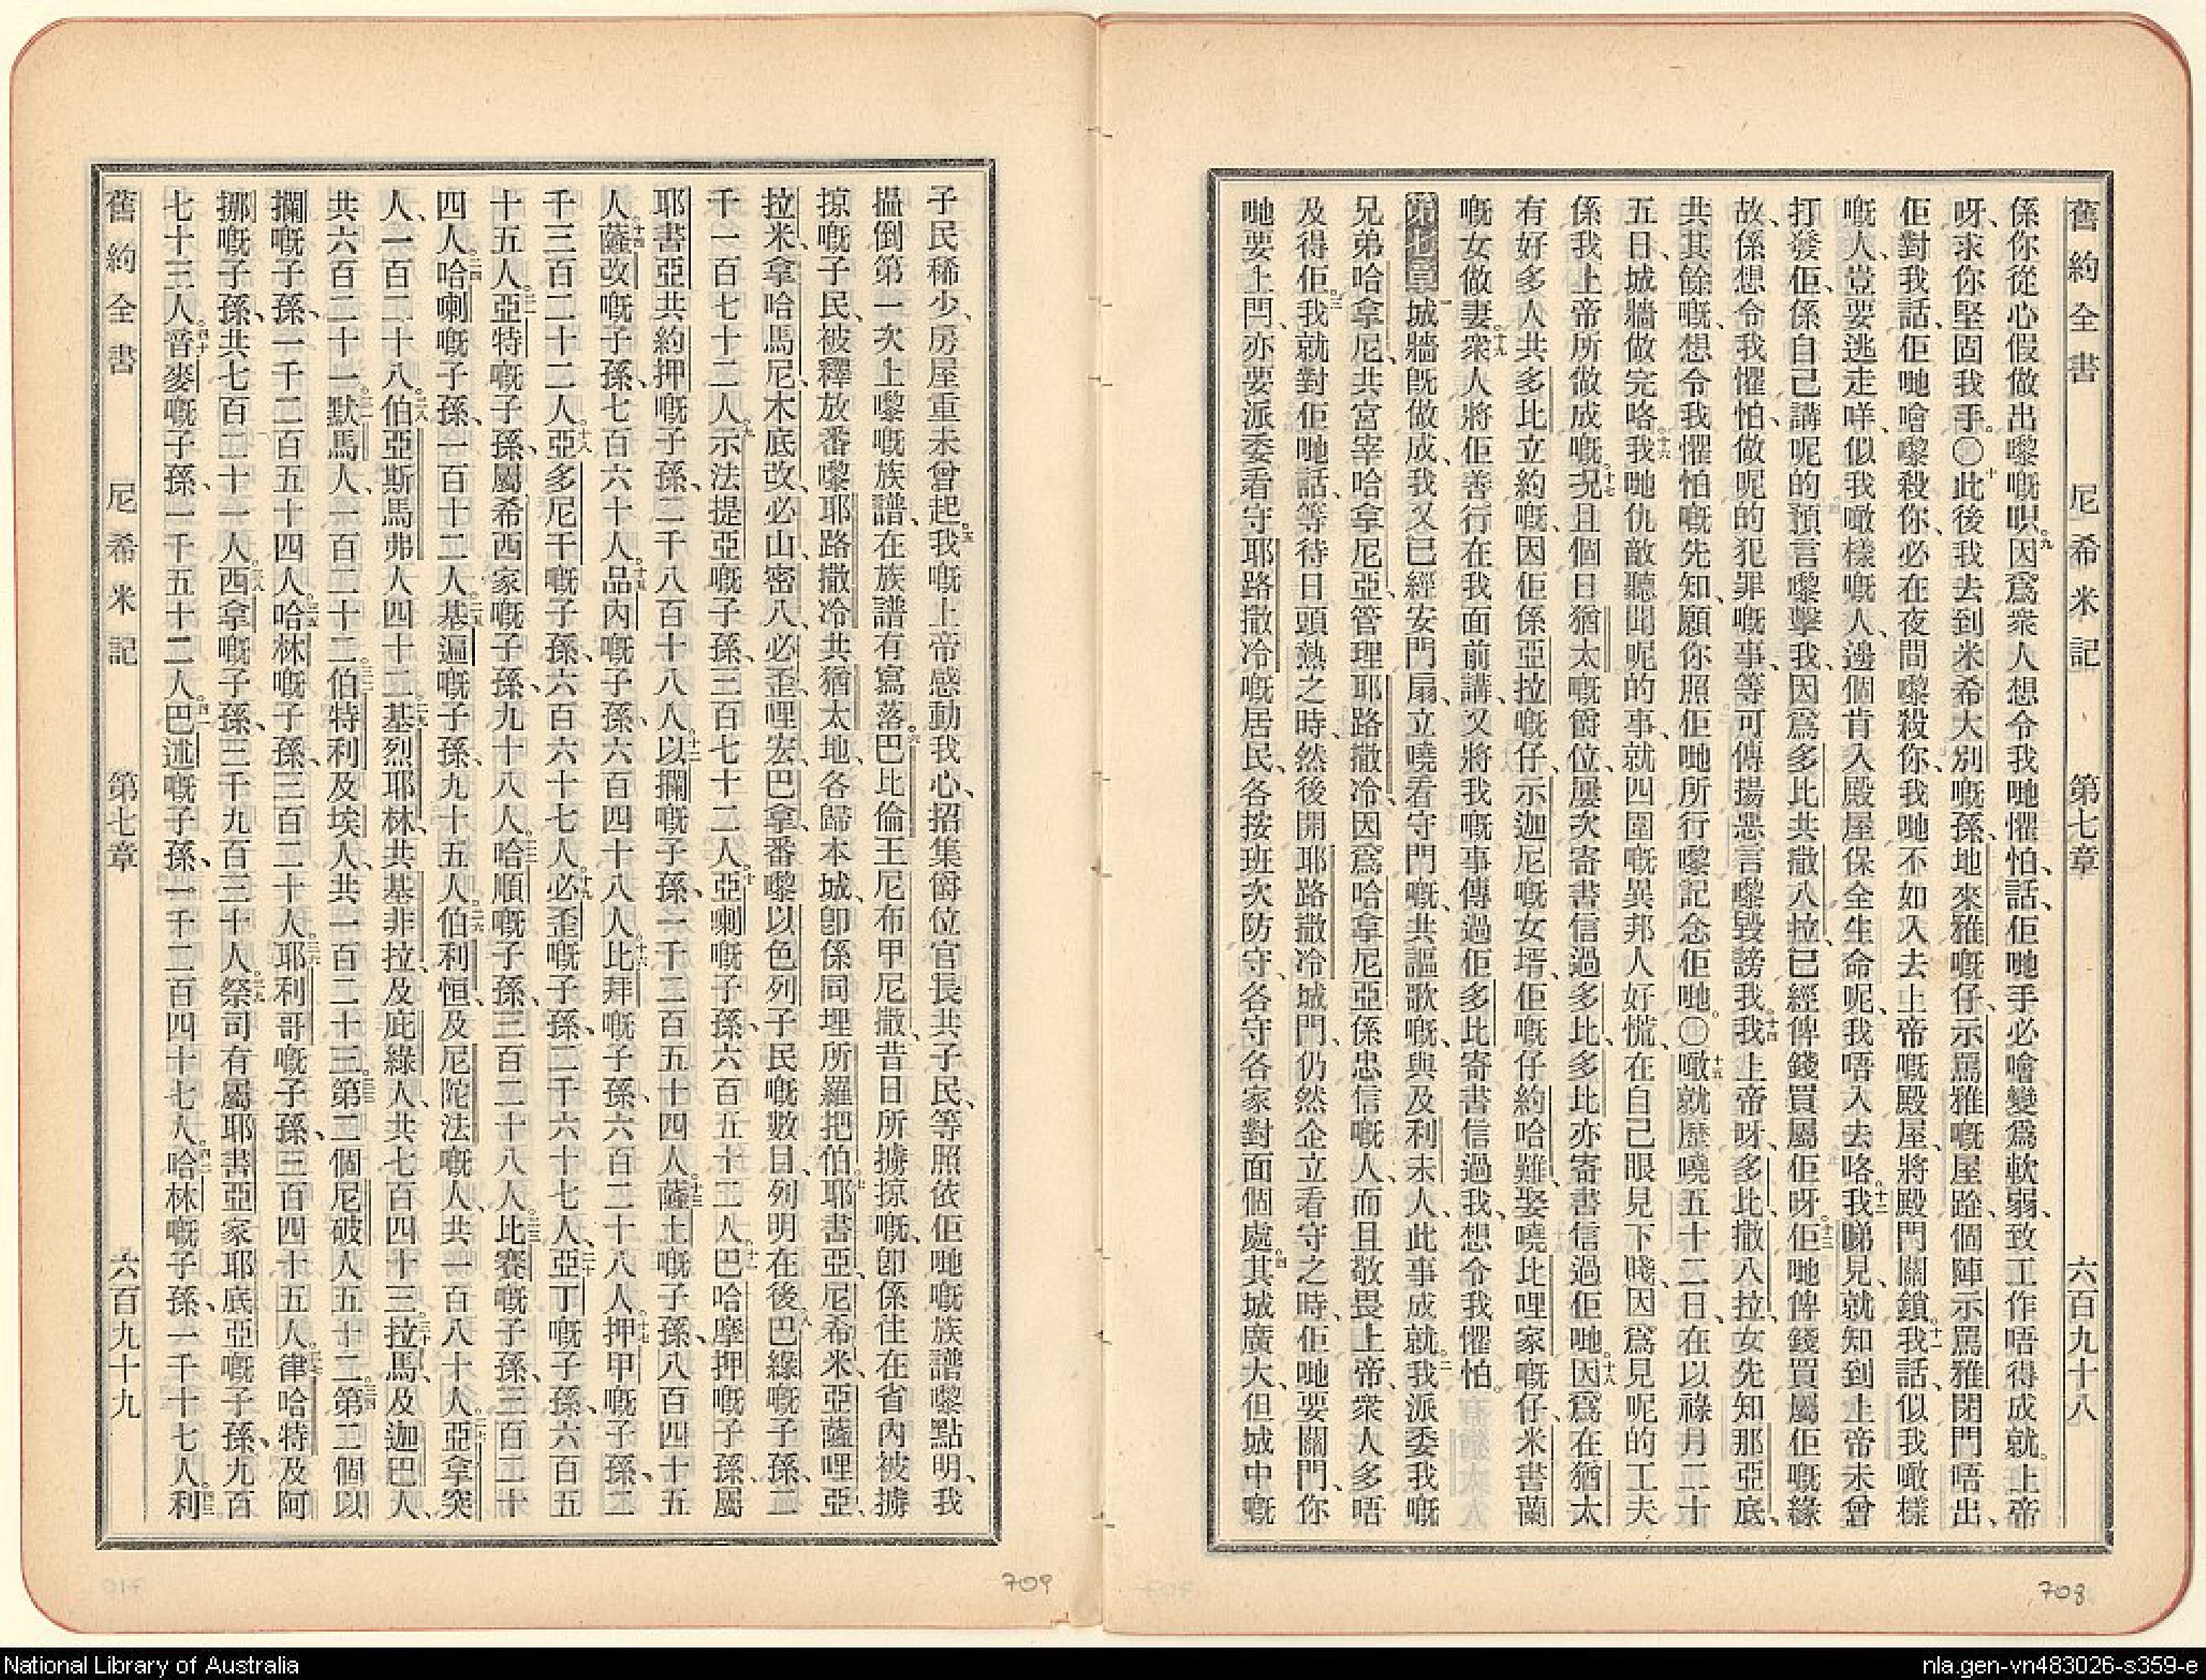 舊約全書 尼希米記 第七章 六百九十八
係你從心假做出嚟嘅唄。九因爲衆人想令我哋懼怕、話、佢哋手必噲變爲軟弱、致工作唔得成就。上帝
呀、求你堅固我手。〇十此後我去到米希大別嘅孫、地來雅嘅仔、示罵雅嘅屋、跧個陣示罵雅閉門唔出、
佢對我話、佢哋噲嚟殺你、必在夜間嚟殺你、我哋不如入去上帝嘅殿屋、將殿門關鎖。十一我話、似我噉樣
嘅人、豈要逃走咩、似我噉樣嘅人、邊個肯入殿屋保全生命呢、我唔入去咯。十二我睇見、就知到上帝未曾
打發佢、係自己講呢的預言嚟擊我、因爲多比共撒八拉、已經俾錢買屬佢呀。十三佢哋俾錢買屬佢嘅緣
故、係想令我懼怕、做呢的犯罪嘅事、等可傳揚惡言嚟毀謗我。十四我上帝呀、多比、撒八拉、女先知那亞底、
共其餘嘅、想令我懼怕嘅先知、願你照佢哋所行嚟記念佢哋。〇十五噉就歷曉五十二日、在以祿月二十
五日、城牆做完咯。十六我哋仇敵聽聞呢的事、就四圍嘅異邦人好慌、在自己眼見下賤、因爲見呢的工夫
係我上帝所做成嘅。十七况且個日猶太嘅爵位、屢次寄書信過多比、多比亦寄書信過佢哋。十八因爲在猶太
有好多人共多比立約嘅、因佢係亞拉嘅仔、示迦尼嘅女壻、佢嘅仔約哈難、娶曉比哩家嘅仔、米書蘭
嘅女做妻。十九衆人將佢善行在我面前講、又將我嘅事傳過佢、多比寄書信過我、想令我懼怕。
第七章一城牆既做成、我又已經安門扇、立曉看守門嘅、共謳歌嘅、與及利未人、此事成就。二我派委我嘅
兄弟哈拿尼、共宮宰哈拿尼亞、管理耶路撒冷、因爲哈拿尼亞係忠信嘅人、而且敬畏上帝、衆人多唔
及得佢。三我就對佢哋話、等待日頭熱之時、然後開耶路撒冷城門、仍然企立看守之時、佢哋要關門、你
哋要上門、亦要派委看守耶路撒冷嘅居民、各按班次防守、各守各家對面個處。四其城廣大、但城中嘅
708
子民稀少、房屋重未曾起。五我嘅上帝感動我心、招集爵位官長共子民、等照依佢哋嘅族譜嚟點明、我
揾倒第一次上嚟嘅族譜、在族譜有寫落。六巴比倫王尼布甲尼撒、昔日所擄掠嘅、卽係住在省內被擄
掠嘅子民、被釋放番嚟耶路撒冷共猶太地、各歸本城、卽係同埋所羅把伯、七耶書亞、尼希米、亞薩哩亞、
拉米、拿哈馬尼、木底改、必山、密八、必歪哩、宏巴拿番嚟、以色列子民嘅數目、列明在後。八巴綠嘅子孫、二
千一百七十二人。九示法提亞嘅子孫、三百七十二人。十亞喇嘅子孫、六百五十二人。十一巴哈摩押嘅子孫、屬
耶書亞共約押嘅子孫、二千八百十八人。十二以攔嘅子孫、一千二百五十四人。十三薩土嘅子孫、八百四十五
人。十四薩改嘅子孫、七百六十人。十五品內嘅子孫、六百四十八人。十六比拜嘅子孫、六百二十八人。十七押甲嘅子孫、二
千三百二十二人。十八亞多尼干嘅子孫、六百六十七人。十九必歪嘅子孫、二千六十七人。二十亞丁嘅子孫、六百五
十五人。二一亞特嘅子孫、屬希西家嘅子孫、九十八人。二二哈順嘅子孫、三百二十八人。二三比賽嘅子孫、三百二十
四人。二四哈喇嘅子孫、一百十二人。二五基遍嘅子孫、九十五人。二六伯利恒、及尼陀法嘅人、共一百八十八人。二七亞拿突
人、一百二十八。二八伯亞斯馬弗人四十二。二九基烈耶林、共基非拉、及庇綠人、共七百四十三。三十拉馬、及迦巴人、
共六百二十一。三一默馬人、一百二十二。三二伯特利及埃人、共一百二十三。三三第二個尼破人五十二。三四第二個以
攔嘅子孫、一千二百五十四人。三五哈林嘅子孫、三百二十人。三六耶利哥嘅子孫、三百四十五人。三七律哈特及阿
挪嘅子孫、共七百二十一人。三八西拿嘅子孫、三千九百三十人。三九祭司有屬耶書亞家耶底亞嘅子孫、九百
七十三人。四十音麥嘅子孫、一千五十二人。四一巴述嘅子孫、一千二百四十七人。四二哈林嘅子孫、一千十七人。四三利
舊約全書 尼希米記 第七章 六百九十九
709
National Library of Australia
nla.gen-vn483026-s359-e